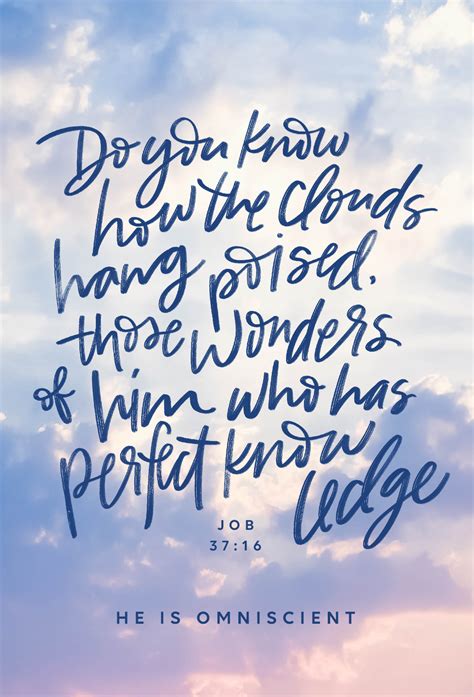 Do you know
how the clouds
hang poised,
those wonders
of him who has
perfect know
ledge
JOB
37:16
HE IS OMNISCIENT